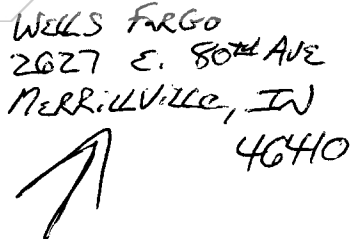 Wells Fargo
2627 E. 80th Ave
Merrillville, IN
46410